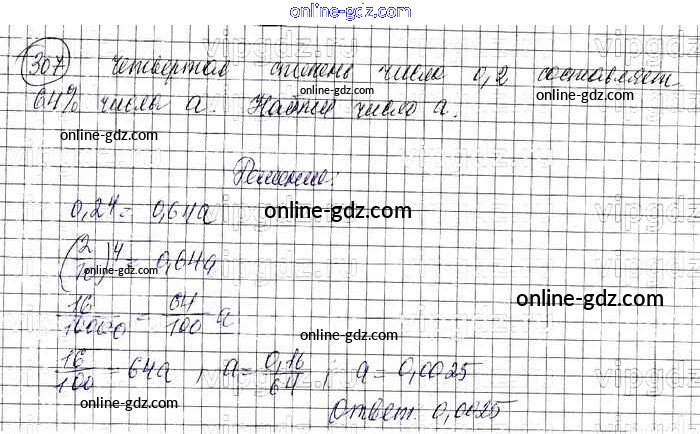 online-gdz.com
307 Четвертая степень числа 0,2 составляет
64% числа a. Найти число a.
online-gdz.com online-gdz.com online-gdz.com
Решение:
0,2⁴ = 0,64a
online-gdz.com
(2/10)⁴ = 0,64a
online-gdz.com
16/10000 = 64/100 a
online-gdz.com
online-gdz.com
16/100 = 64a, a = 0,16/64; a = 0,0025
online-gdz.com
Ответ 0,0025
online-gdz.com